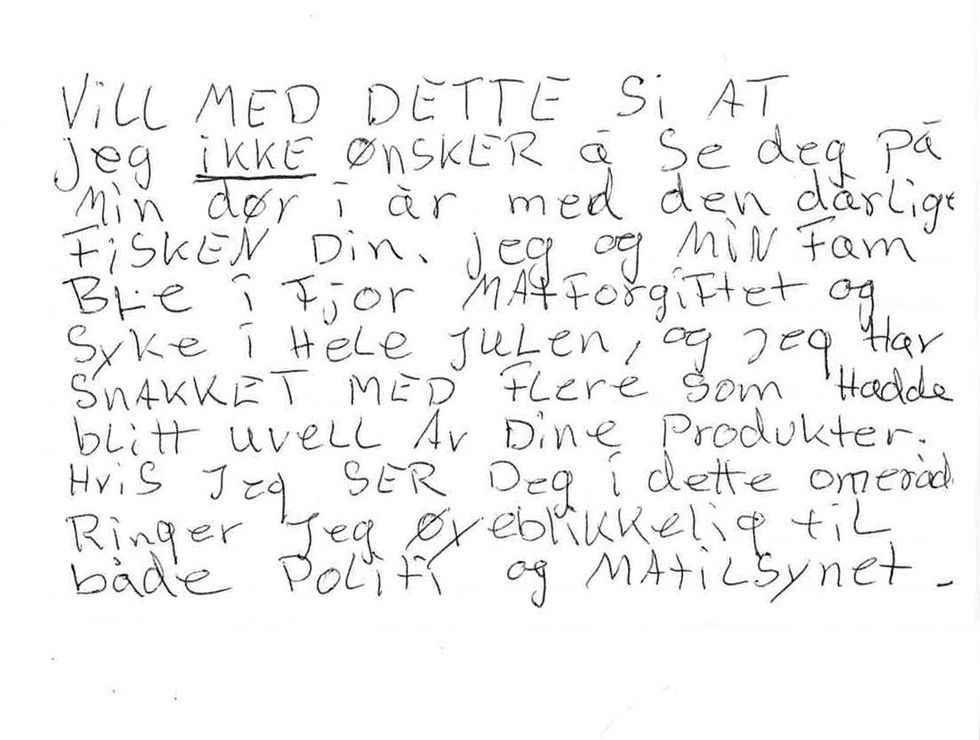 Vill MED DETTE Si AT
jeg iKKE ØNSKER å Se deg På
Min dør i år med den dårlige
FiSKEN Din. jeg og MiN Fam
BLe i Fjor MAtForgiFtet og
Syke i HeLe juLen, og jeg Har
SNAKKET MED FLere som Hadde
blitt uveLL Av Dine Produkter.
HviS Jeg SER Deg i dette område
Ringer Jeg Øyeblikkelig tiL
både PoLiti og MAtiLSynet.